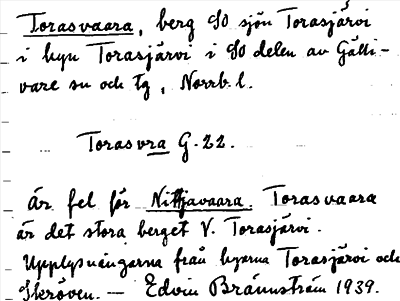 Torasvaara, berg SO sjön Torasjärvi
i byn Torasjärvi i SO delen av Gälli-
vare sn och tg, Norrb. l.
Torasvra G. 22.
är fel för Nittjavaara. Torasvaara
är det stora berget V. Torasjärvi.
Upplysningarna från byarna Torasjärvi och
Skröven. — Edvin Brännström 1939.